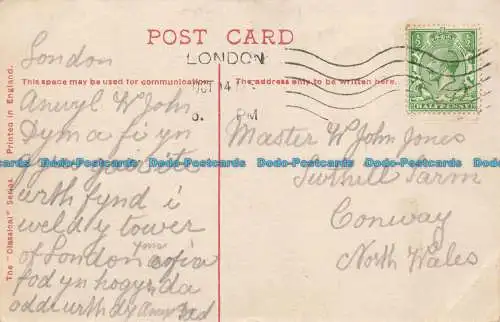 POST CARD
LONDON
OCT 14
6. PM
HALFPENNY
This space may be used for communication.
The address only to be written here.
The "Classical" Series. Printed in England.
London
Anwyl W John
Dyma fi yn
wrth fynd i
weld y tower
of London
fod yn hogyn da
oddi wrth dy
Dad
Master W John Jones
Farm
Conway
North Wales
Dodo-Postcards Dodo-Postcards Dodo-Postcards Dodo-Postcards